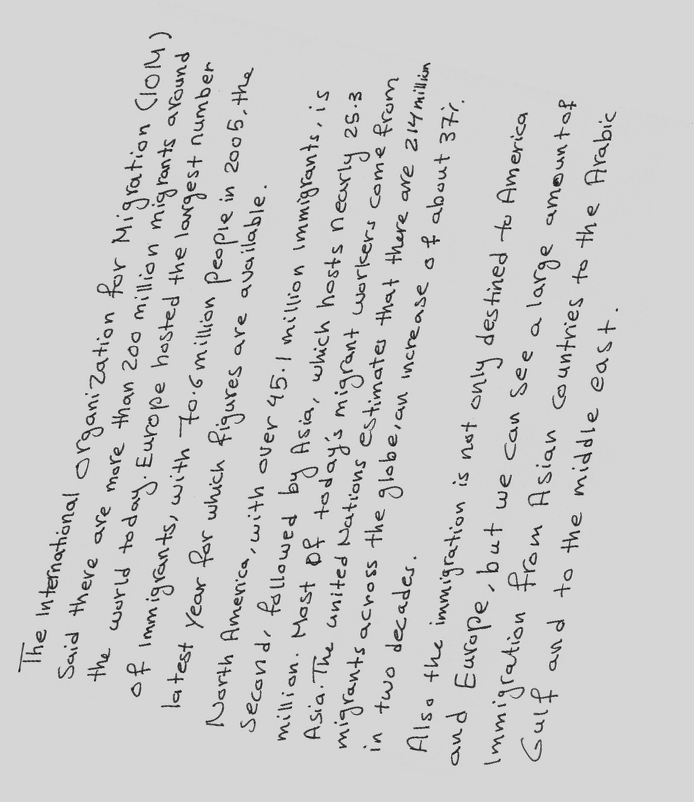 The International Organization for Migration (IOM)
Said there are more than 200 million migrants around
the world today. Europe hosted the largest number
of Immigrants, with 70.6 million People in 2005, the
latest year for which figures are available.
North America, with over 45.1 million immigrants, is
second, followed by Asia, which hosts nearly 25.3
million. Most of today's migrant workers come from
Asia. The united Nations estimates that there are 214 million
migrants across the globe, an increase of about 37%.
in two decades.
Also the immigration is not only destined to America
and Europe, but we can see a large amount of
Immigration from Asian Countries to the Arabic
Gulf and to the middle east.